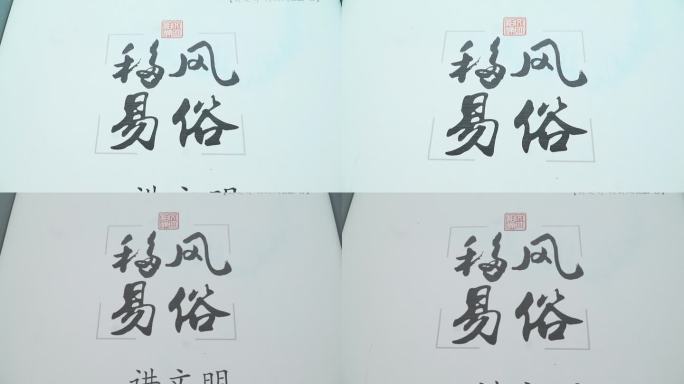 移风
易俗
移风
易俗
移风
易俗
讲文明
移风
易俗